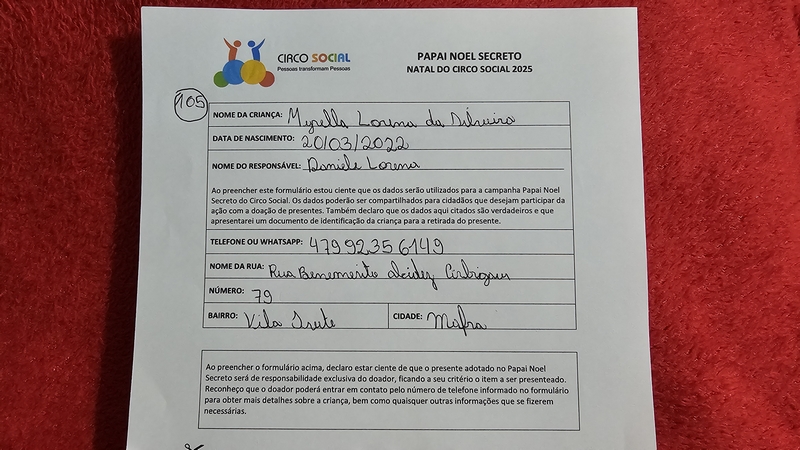 CIRCO SOCIAL
Pessoas transformam Pessoas
PAPAI NOEL SECRETO
NATAL DO CIRCO SOCIAL 2025
105
NOME DA CRIANÇA: Myrella Lorena da Silveira
DATA DE NASCIMENTO: 20/03/2022
NOME DO RESPONSÁVEL: Daniele Lorena
Ao preencher este formulário estou ciente que os dados serão utilizados para a campanha Papai Noel
Secreto do Circo Social. Os dados poderão ser compartilhados para cidadãos que desejam participar da
ação com a doação de presentes. Também declaro que os dados aqui citados são verdadeiros e que
apresentarei um documento de identificação da criança para a retirada do presente.
TELEFONE OU WHATSAPP: 47992356149
NOME DA RUA: Rua Benemerito alcidez
NÚMERO: 79
BAIRRO: Vila CIDADE: Mafra
Ao preencher o formulário acima, declaro estar ciente de que o presente adotado no Papai Noel
Secreto será de responsabilidade exclusiva do doador, ficando a seu critério o item a ser presenteado.
Reconheço que o doador poderá entrar em contato pelo número de telefone informado no formulário
para obter mais detalhes sobre a criança, bem como quaisquer outras informações que se fizerem
necessárias.